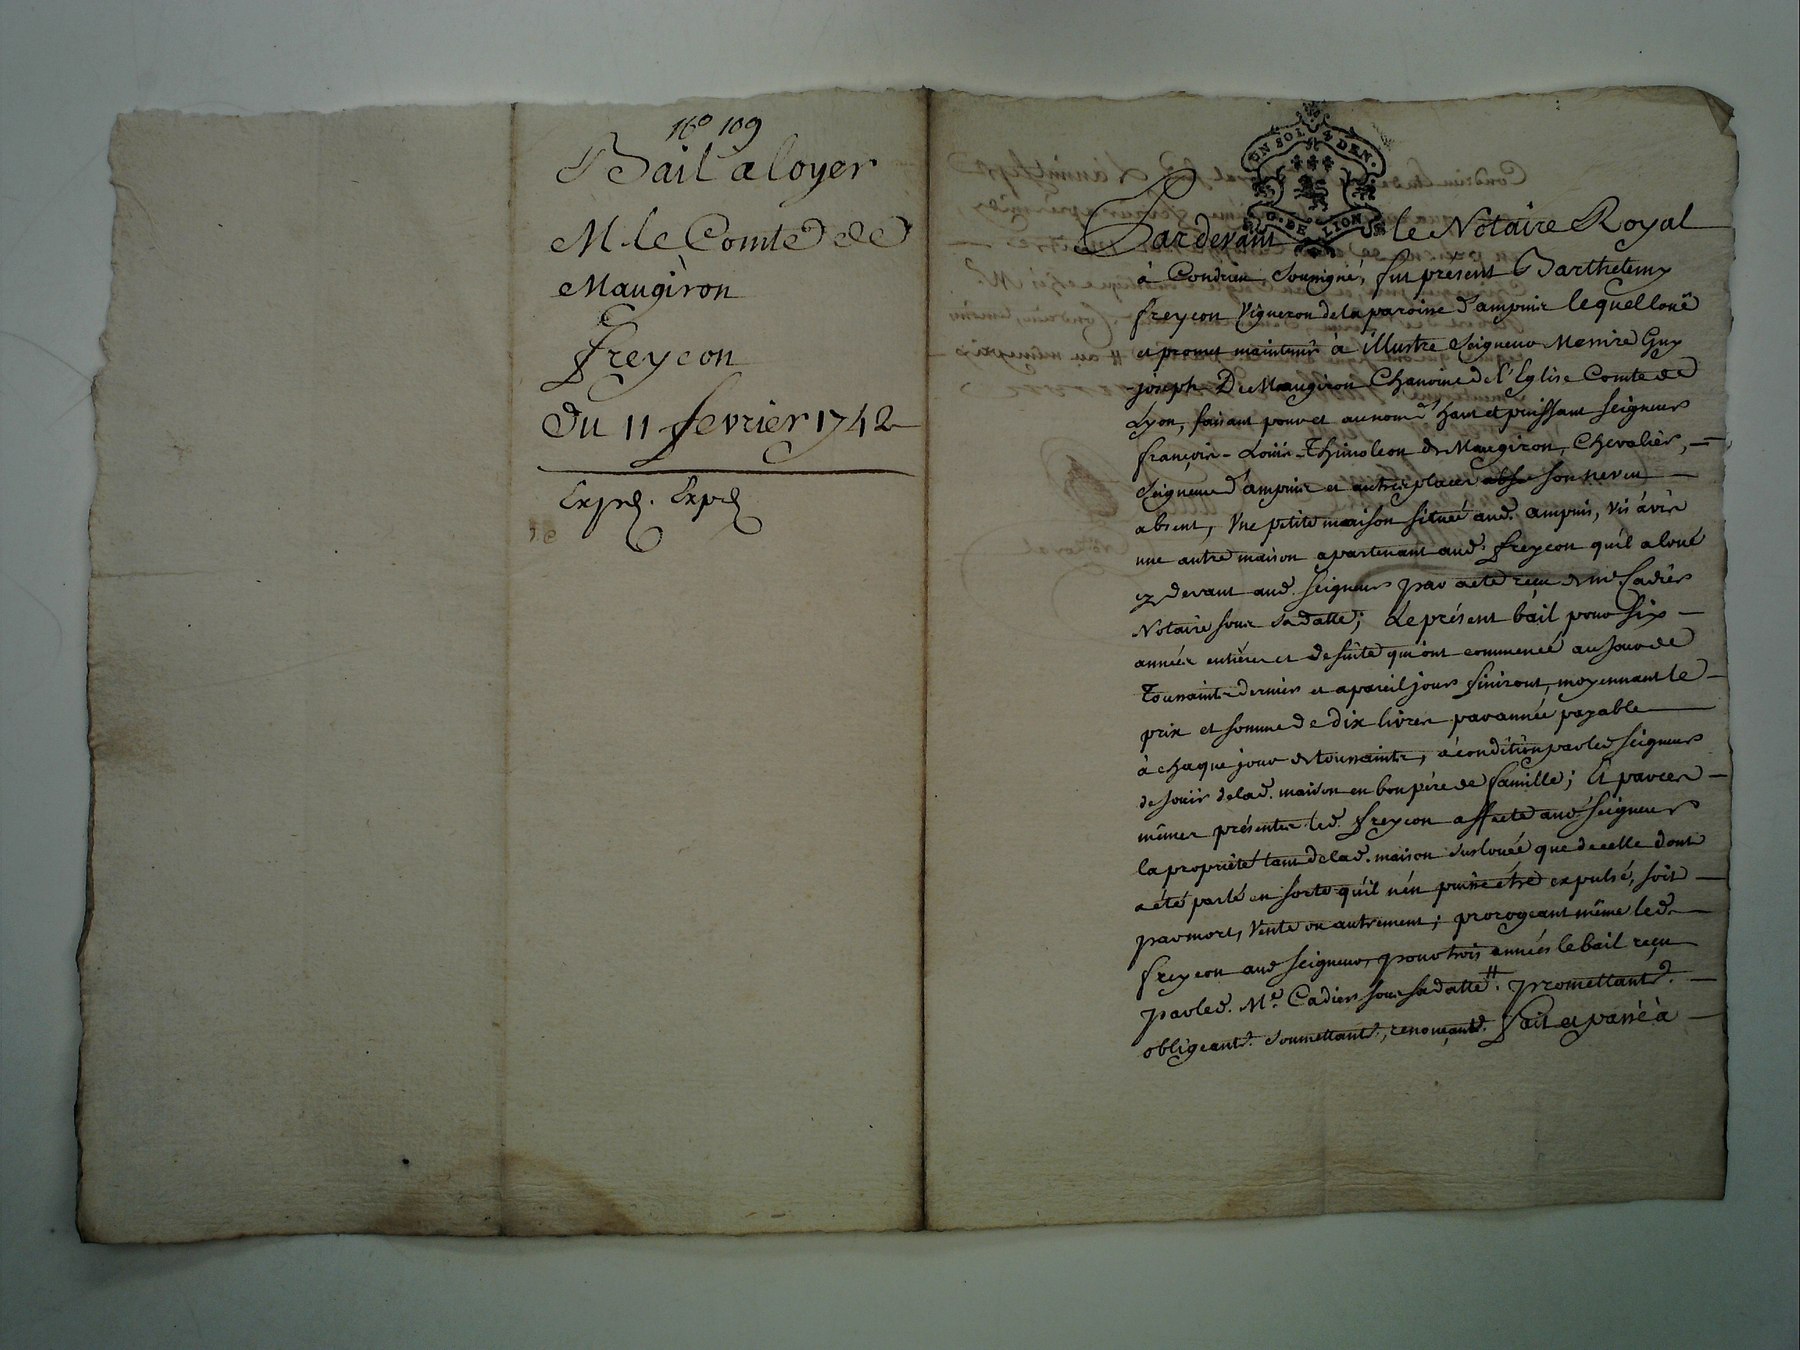 No 109
Bail a loyer
M. le Comte de
Maugiron
freycon
Du 11 fevrier 1742
Expd. Expd
UN SOL 2 DEN.
G. DE LION
Pardevant le Notaire Royal
à Condrieu Soussigné, fut présent Barthelemy
freycon Vigneron de la paroisse d'ampuis lequel loüe
et promet maintenir à illustre Seigneur Messire Guy
joseph De Maugiron Chanoine de l'Eglise Comte de
Lyon, faisant pour et au nom d haut et puissant Seigneur
françois-Loüis-Thimoleon de Maugiron, Chevalier,
Seigneur d'ampuis et autres places son neveu
absent, Une petite maison située aud. ampuis, vis à vis
une autre maison apartenant aud. freycon qu'il a loué
cy devant aud. Seigneur par acte reçu de me Cadier
Notaire sous sa datte; Le présent bail pour six
années entières et de suite qui ont commencé au jour de
Toussaints dernier et a pareil jour finiront, moyennant le
prix et somme de dix livres par année payable
à chaque jour de toussaints, à condition par led. seigneur
de joüir de lad. maison en bon père de famille; Et par ces
mêmes présentes led. freycon affecte aud. Seigneur
la propriété tant de lad. maison suslouée que de celle dont
a été parlé en sorte qu'il n'en puisse être expulsé, soit
par mort, Vente ou autrement; prorogeant même led.
freycon aud Seigneur, pour trois années le bail reçu
par led. Me. Cadier sous sa datte. promettant.
obligeant. soumettant, renonçant. fait et passé à